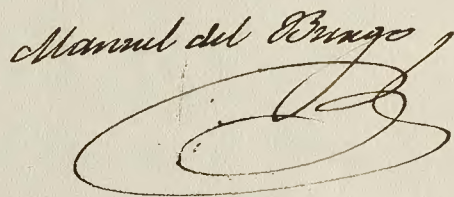 Manuel del Burgo